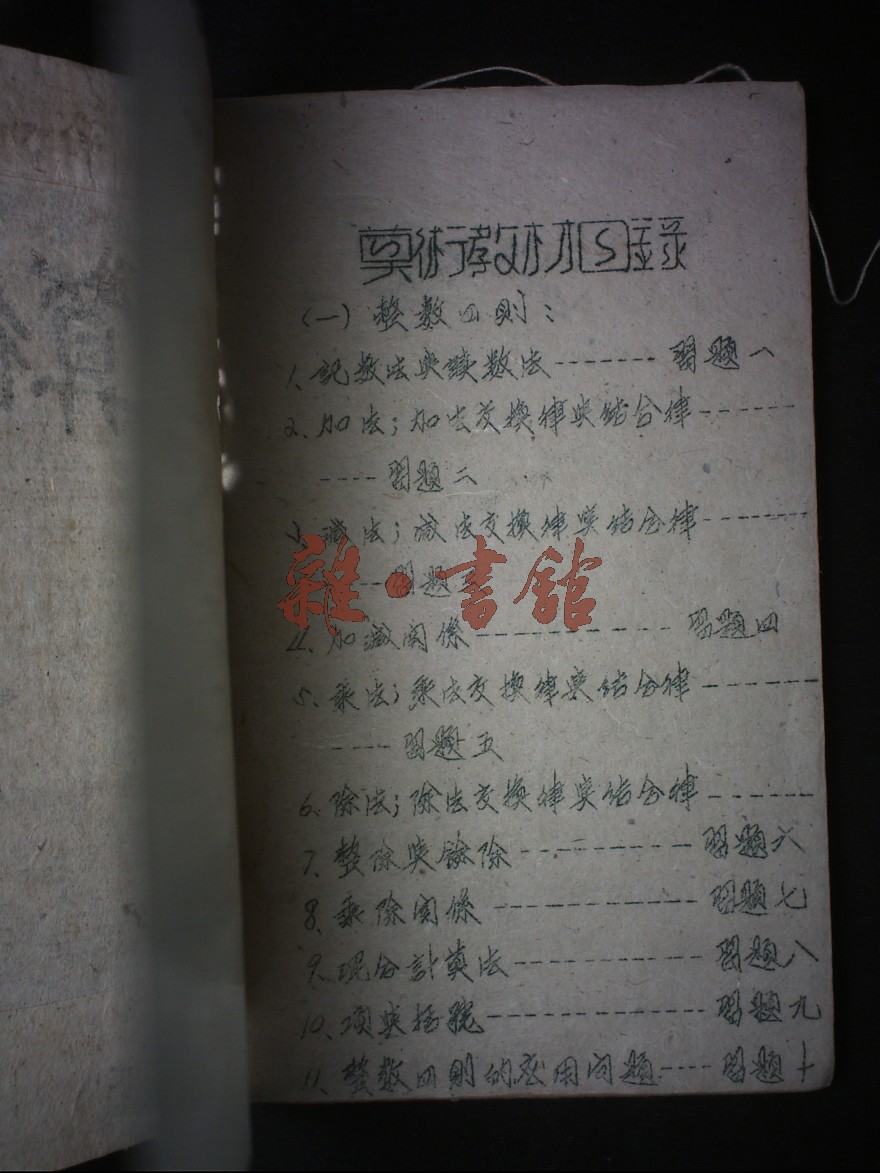 算術教材目錄
(一) 整數四則:
1、記数法與讀数法------- 習題一
2、加法;加法交換律與結合律------
----習題二
3、減法;減法交換律與結合律------
--習題三
雜·書館
4、加減関係----------- 習題四
5、乘法;乘法交換律與結合律------
----習題五
6、除法;除法交換律與結合律------
7、整除與餘除---------- 習題六
8、乘除関係----------- 習題七
9、混合計算法---------- 習題八
10、項與括號------------ 習題九
11、整数四則的应用问題---- 習題十